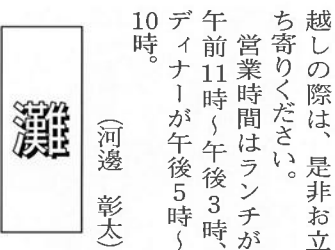 越しの際は、是非お立
ち寄りください。
営業時間はランチが
午前11時～午後3時、
ディナーが午後5時～
10時。
（河邊　彰太）
灘